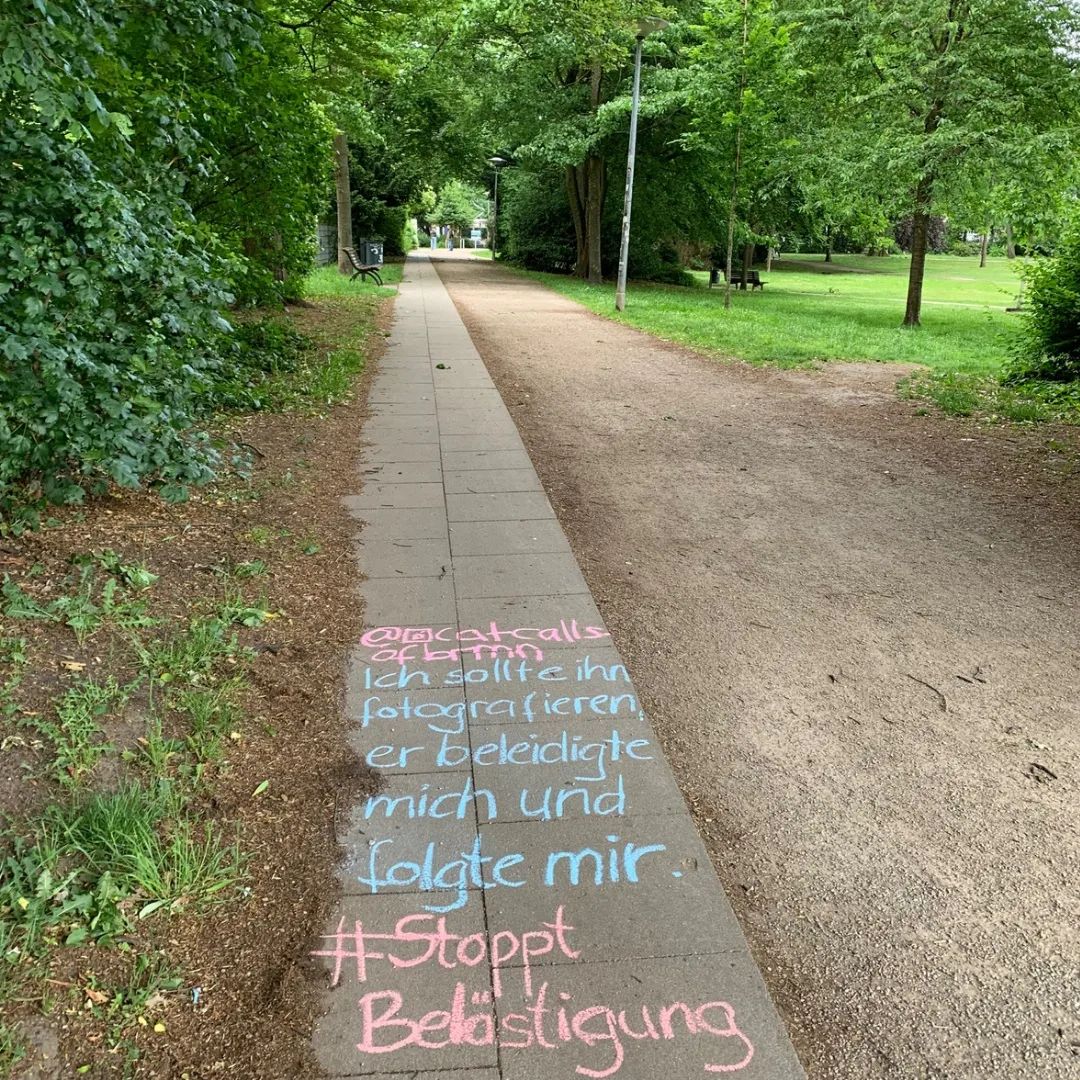 @catcalls
ofbrmn
Ich sollte ihn
fotografieren,
er beleidigte
mich und
folgte mir.
#Stoppt
Belästigung